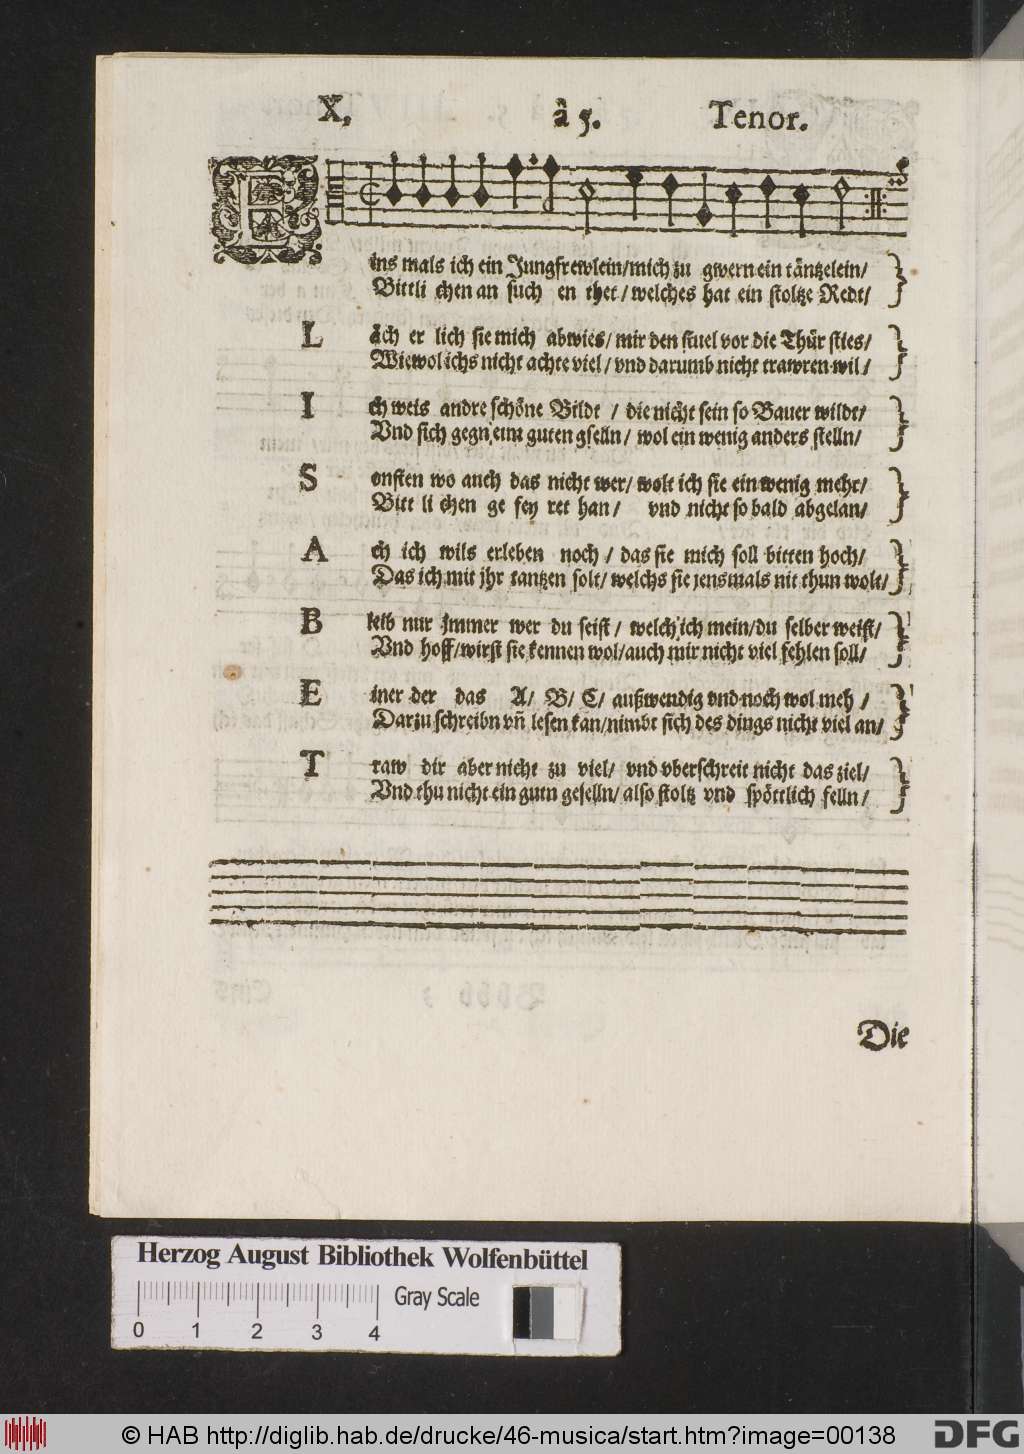 X, à 5. Tenor.
Eins mals ich ein Jungfrewlein/mich zu gwern ein täntzelein/
Bittli chen an such en thet/ welches hat ein stoltze Redt/
L äch er lich sie mich abwies/ mir den stuel vor die Thür sties/
Wiewol ichs nicht achte viel/ vnd darumb nicht trawren wil/
I ch weis andre schöne Bildt / die nicht sein so Bauer wildt/
Vnd sich gegn eim guten gselln/ wol ein wenig anders stelln/
S onsten wo auch das nicht wer/ wolt ich sie ein wenig mehr/
Bitt li chen ge fey ret han/ vnd nicht so bald abgelan/
A ch ich wils erleben noch / das sie mich soll bitten hoch/
Das ich mit jhr tantzen solt/ welchs sie jensmals nit thun wolt/
B leib nur jmmer wer du seist/ welch ich mein/du selber weist/
Vnd hoff/wirst sie kennen wol/auch mir nicht viel fehlen soll/
E iner der das A/ B/ C/ außwendig vnd noch wol meh /
Darzu schreibn vñ lesen kan/nimbt sich des dings nicht viel an/
T raw dir aber nicht zu viel/ vnd vberschreit nicht das ziel/
Vnd thu nicht ein gutn geselln/ also stoltz vnd spöttlich felln/
Die
Herzog August Bibliothek Wolfenbüttel
Gray Scale
0 1 2 3 4
© HAB http://diglib.hab.de/drucke/46-musica/start.htm?image=00138
DFG